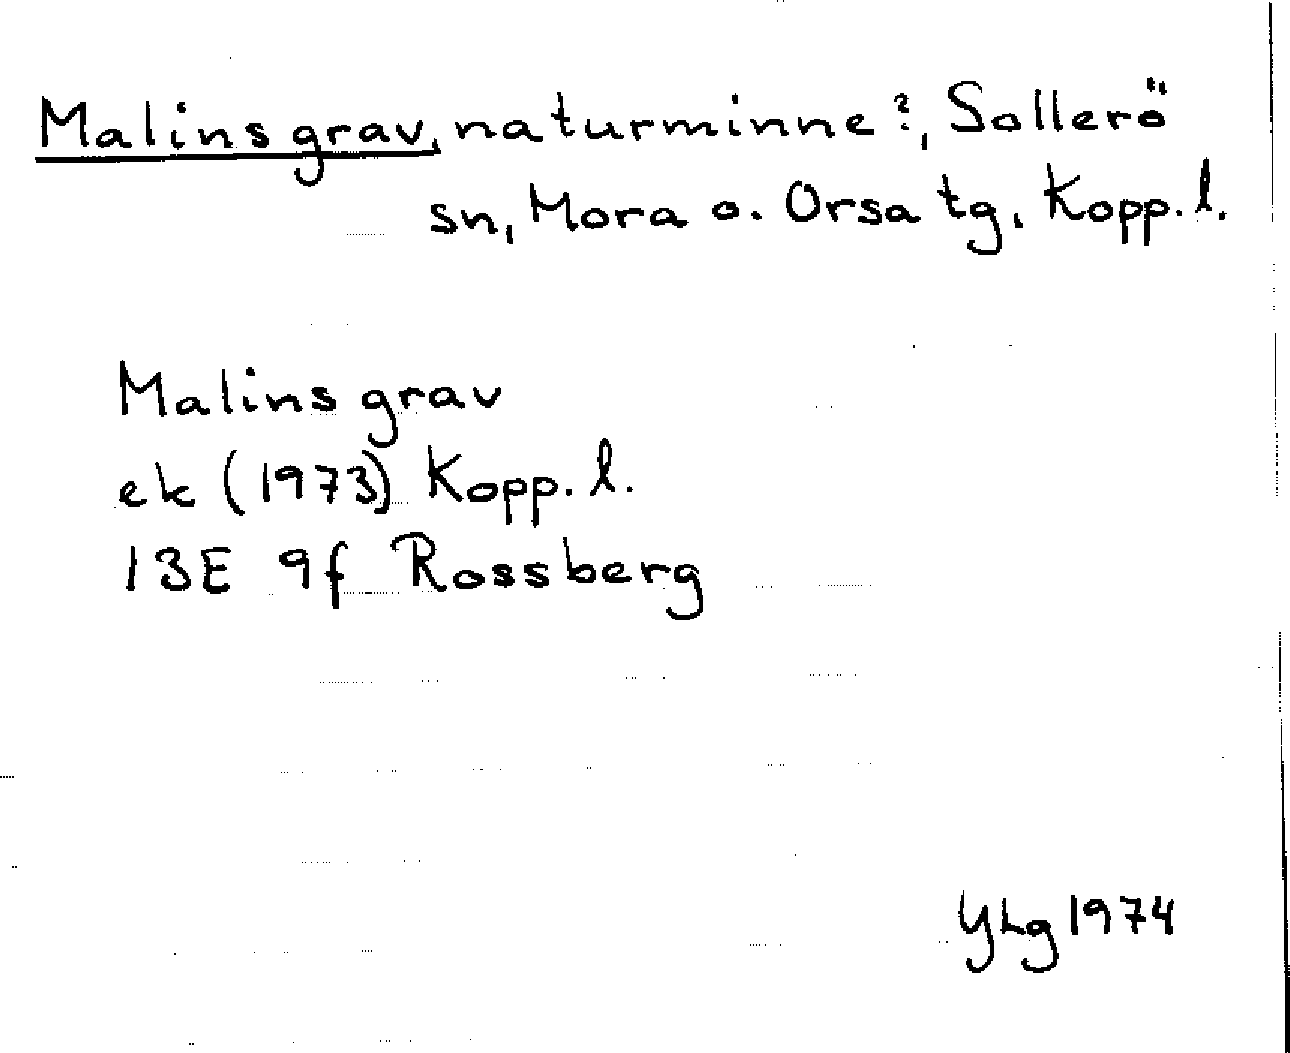 Malins grav, naturminne?, Sollerö
sn, Mora o. Orsa tg, Kopp. l.
Malins grav
ek (1973) Kopp. l.
13E 9f Rossberg
YLg 1974